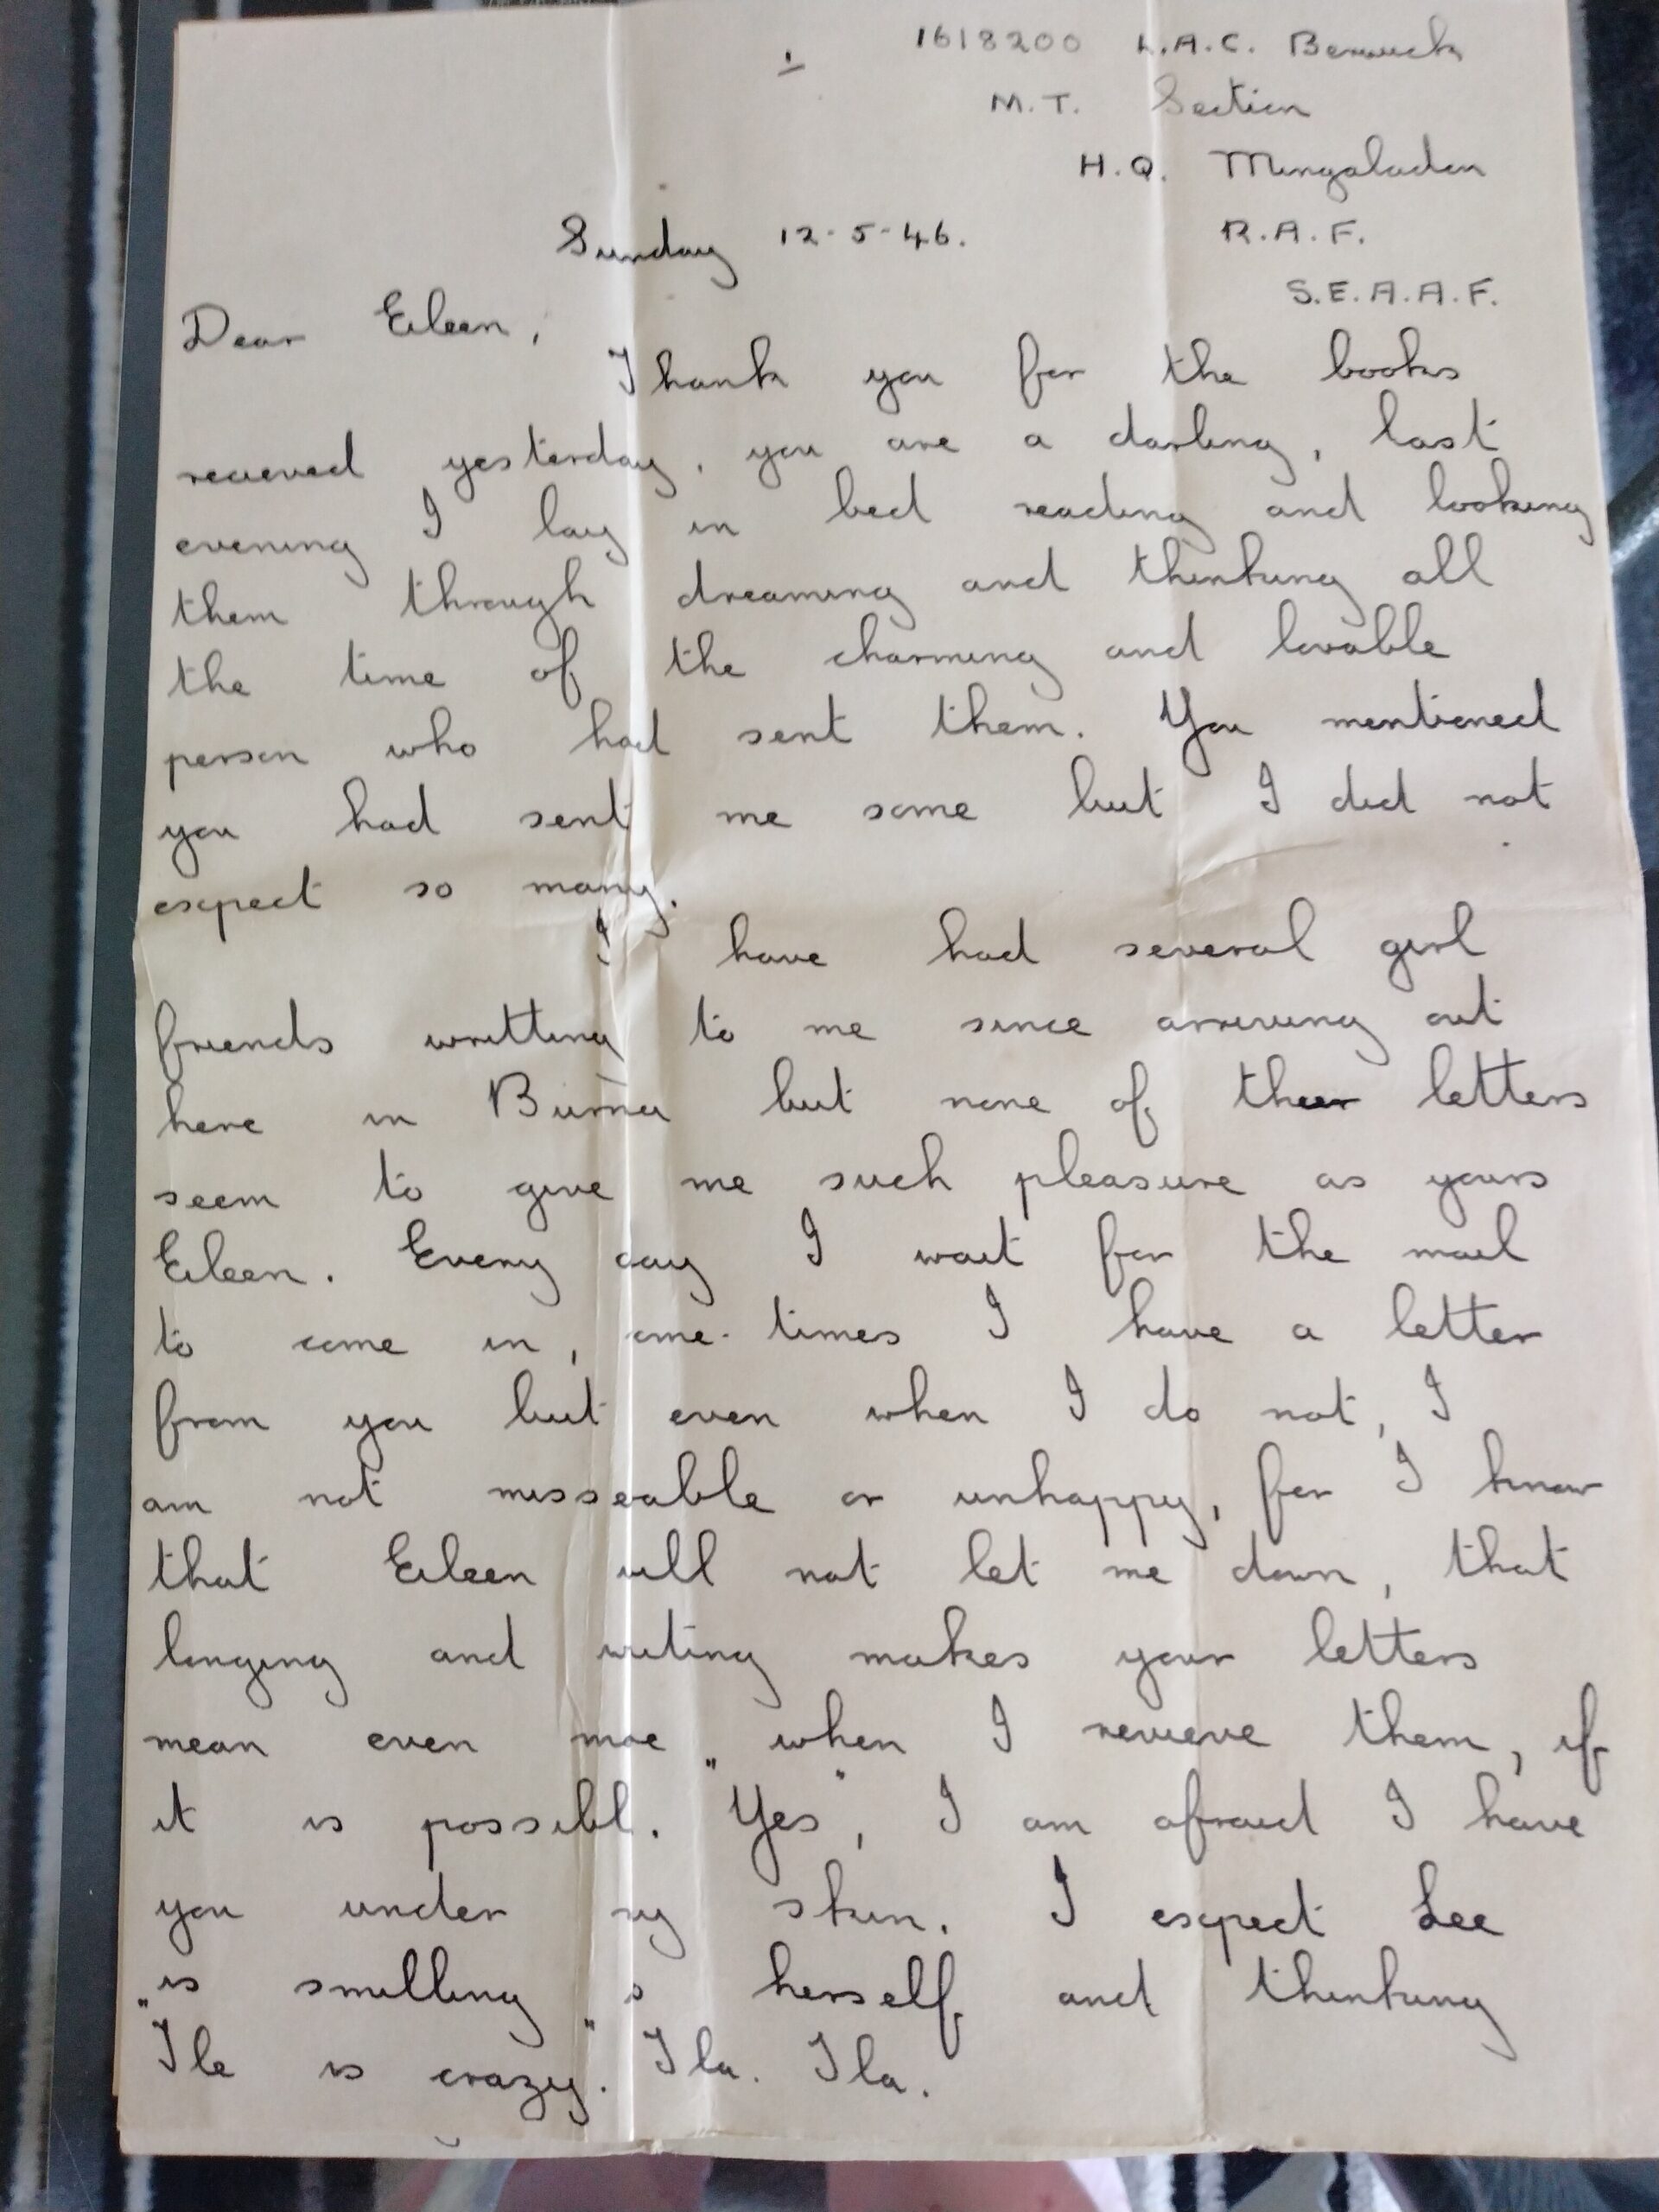 1
1618200 L.A.C. Berwick
M.T. Section
H.Q. Mingaladon
R.A.F.
Sunday 12-5-46.
S.E.A.A.F.
Dear Eileen,
Thank you for the books
received yesterday, you are a darling, last
evening I lay in bed reading and looking
them through dreaming and thinking all
the time of the charming and lovable
person who had sent them. You mentioned
you had sent me some but I did not
expect so many.
I have had several girl
friends writting to me since arriving out
here in Burma but none of their letters
seem to give me such pleasure as yours
Eileen. Every day I wait for the mail
to come in, some-times I have a letter
from you but even when I do not, I
am not misseable or unhappy, for I know
that Eileen will not let me down, that
longing and writing makes your letters
mean even more when I recieve them, if
it is possibl. "Yes", I am afraid I have
you under my skin. I expect Lee
is smilling to herself and thinking
"He is crazy". Ha. Ha.